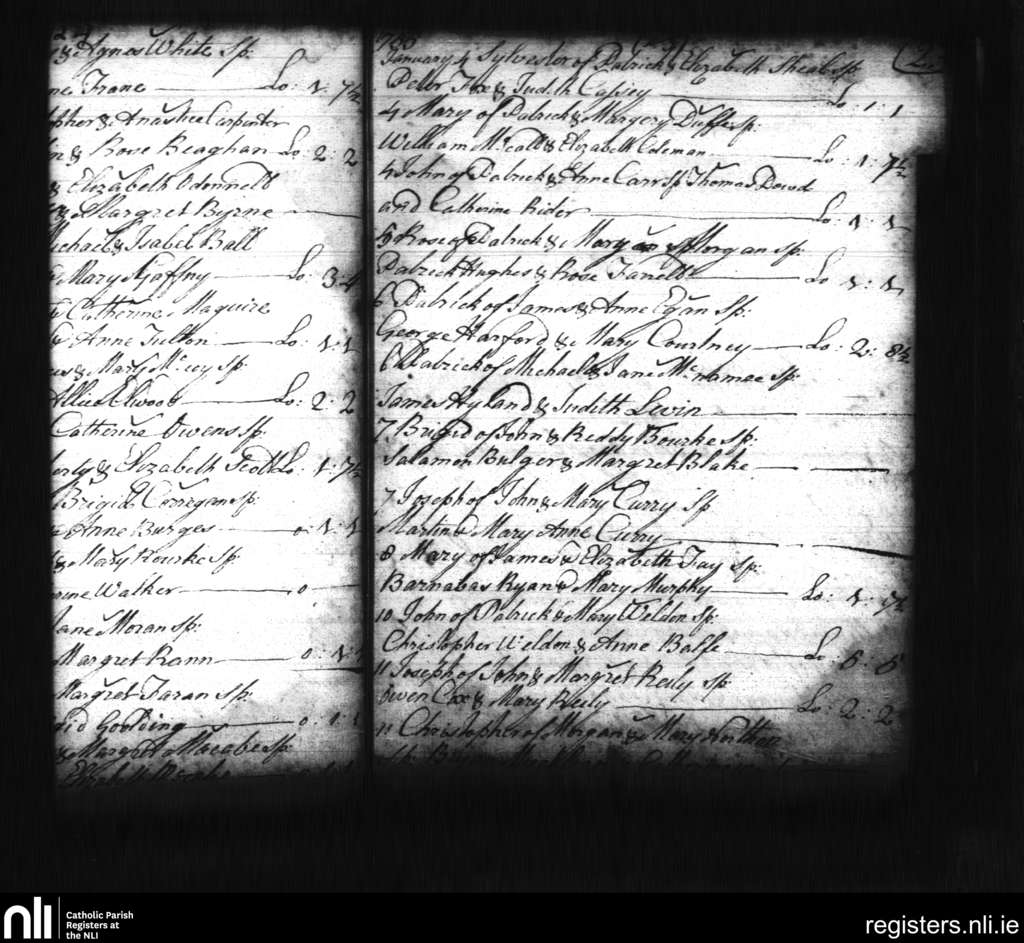 & Agnes White Sp:
ne Frane Lo: 1: 7½
pher & Anastice Carpenter
& Rose Reaghan Lo: 2: 2
& Elizabeth Odonnell
& Margret Byrne
Michael & Isabel Ball
& Mary Gaffny Lo: 3: 4
& Catherine Maguire
& Anne Fulton Lo: 1: 1
& Mary Mc: Sp:
Allice Elwood Lo: 2: 2
Catherine Owens Sp:
erty & Elizabeth Scott Lo: 1: 7½
Brigid Corregan Sp:
Anne Burges 0: 1: 1
& Mary Rourke Sp:
rine Walker 0
Jane Moran Sp:
Margret Rann 0: 1: 1
Margret Faran Sp:
id Goolding 0: 1: 1
& Margret Macabe Sp:
January 4 Sylvester of Patrick & Elizabeth Sheals Sp:
Peter Fox & Judith Cassey Lo: 1: 1
4 Mary of Patrick & Margery Duffe Sp:
William Mccall & Elizabeth Coleman Lo: 1: 7½
4 John of Patrick & Anne Carr Sp Thomas Dowd
and Catherine Rider Lo: 1: 1
5 Rose of Patrick & Mary Morgan Sp:
Patrick Hughes & Rose Farrell Lo 1: 1
6 Patrick of James & Anne Egan Sp:
George Harford & Mary Courtney Lo: 2: 8½
6 Patrick of Michael & Jane Mcnamee Sp:
James Hyland & Judith Levin
7 Brigid of John & Reddy Bourke Sp:
Salamon Bulger & Margret Blake
7 Joseph of John & Mary Curry Sp
Martin & Mary Anne Curry
8 Mary of James & Elizabeth Fay Sp:
Barnabas Ryan & Mary Murphy Lo: 1: 7½
10 John of Patrick & Mary Weldon Sp:
Christopher Weldon & Anne Balfe Lo: 5: 5
11 Joseph of John & Margret Reily Sp
Owen Cox & Mary Reily Lo: 2: 2
11 Christopher of Morgan & Mary
nli
Catholic Parish
Registers at
the NLI
registers.nli.ie